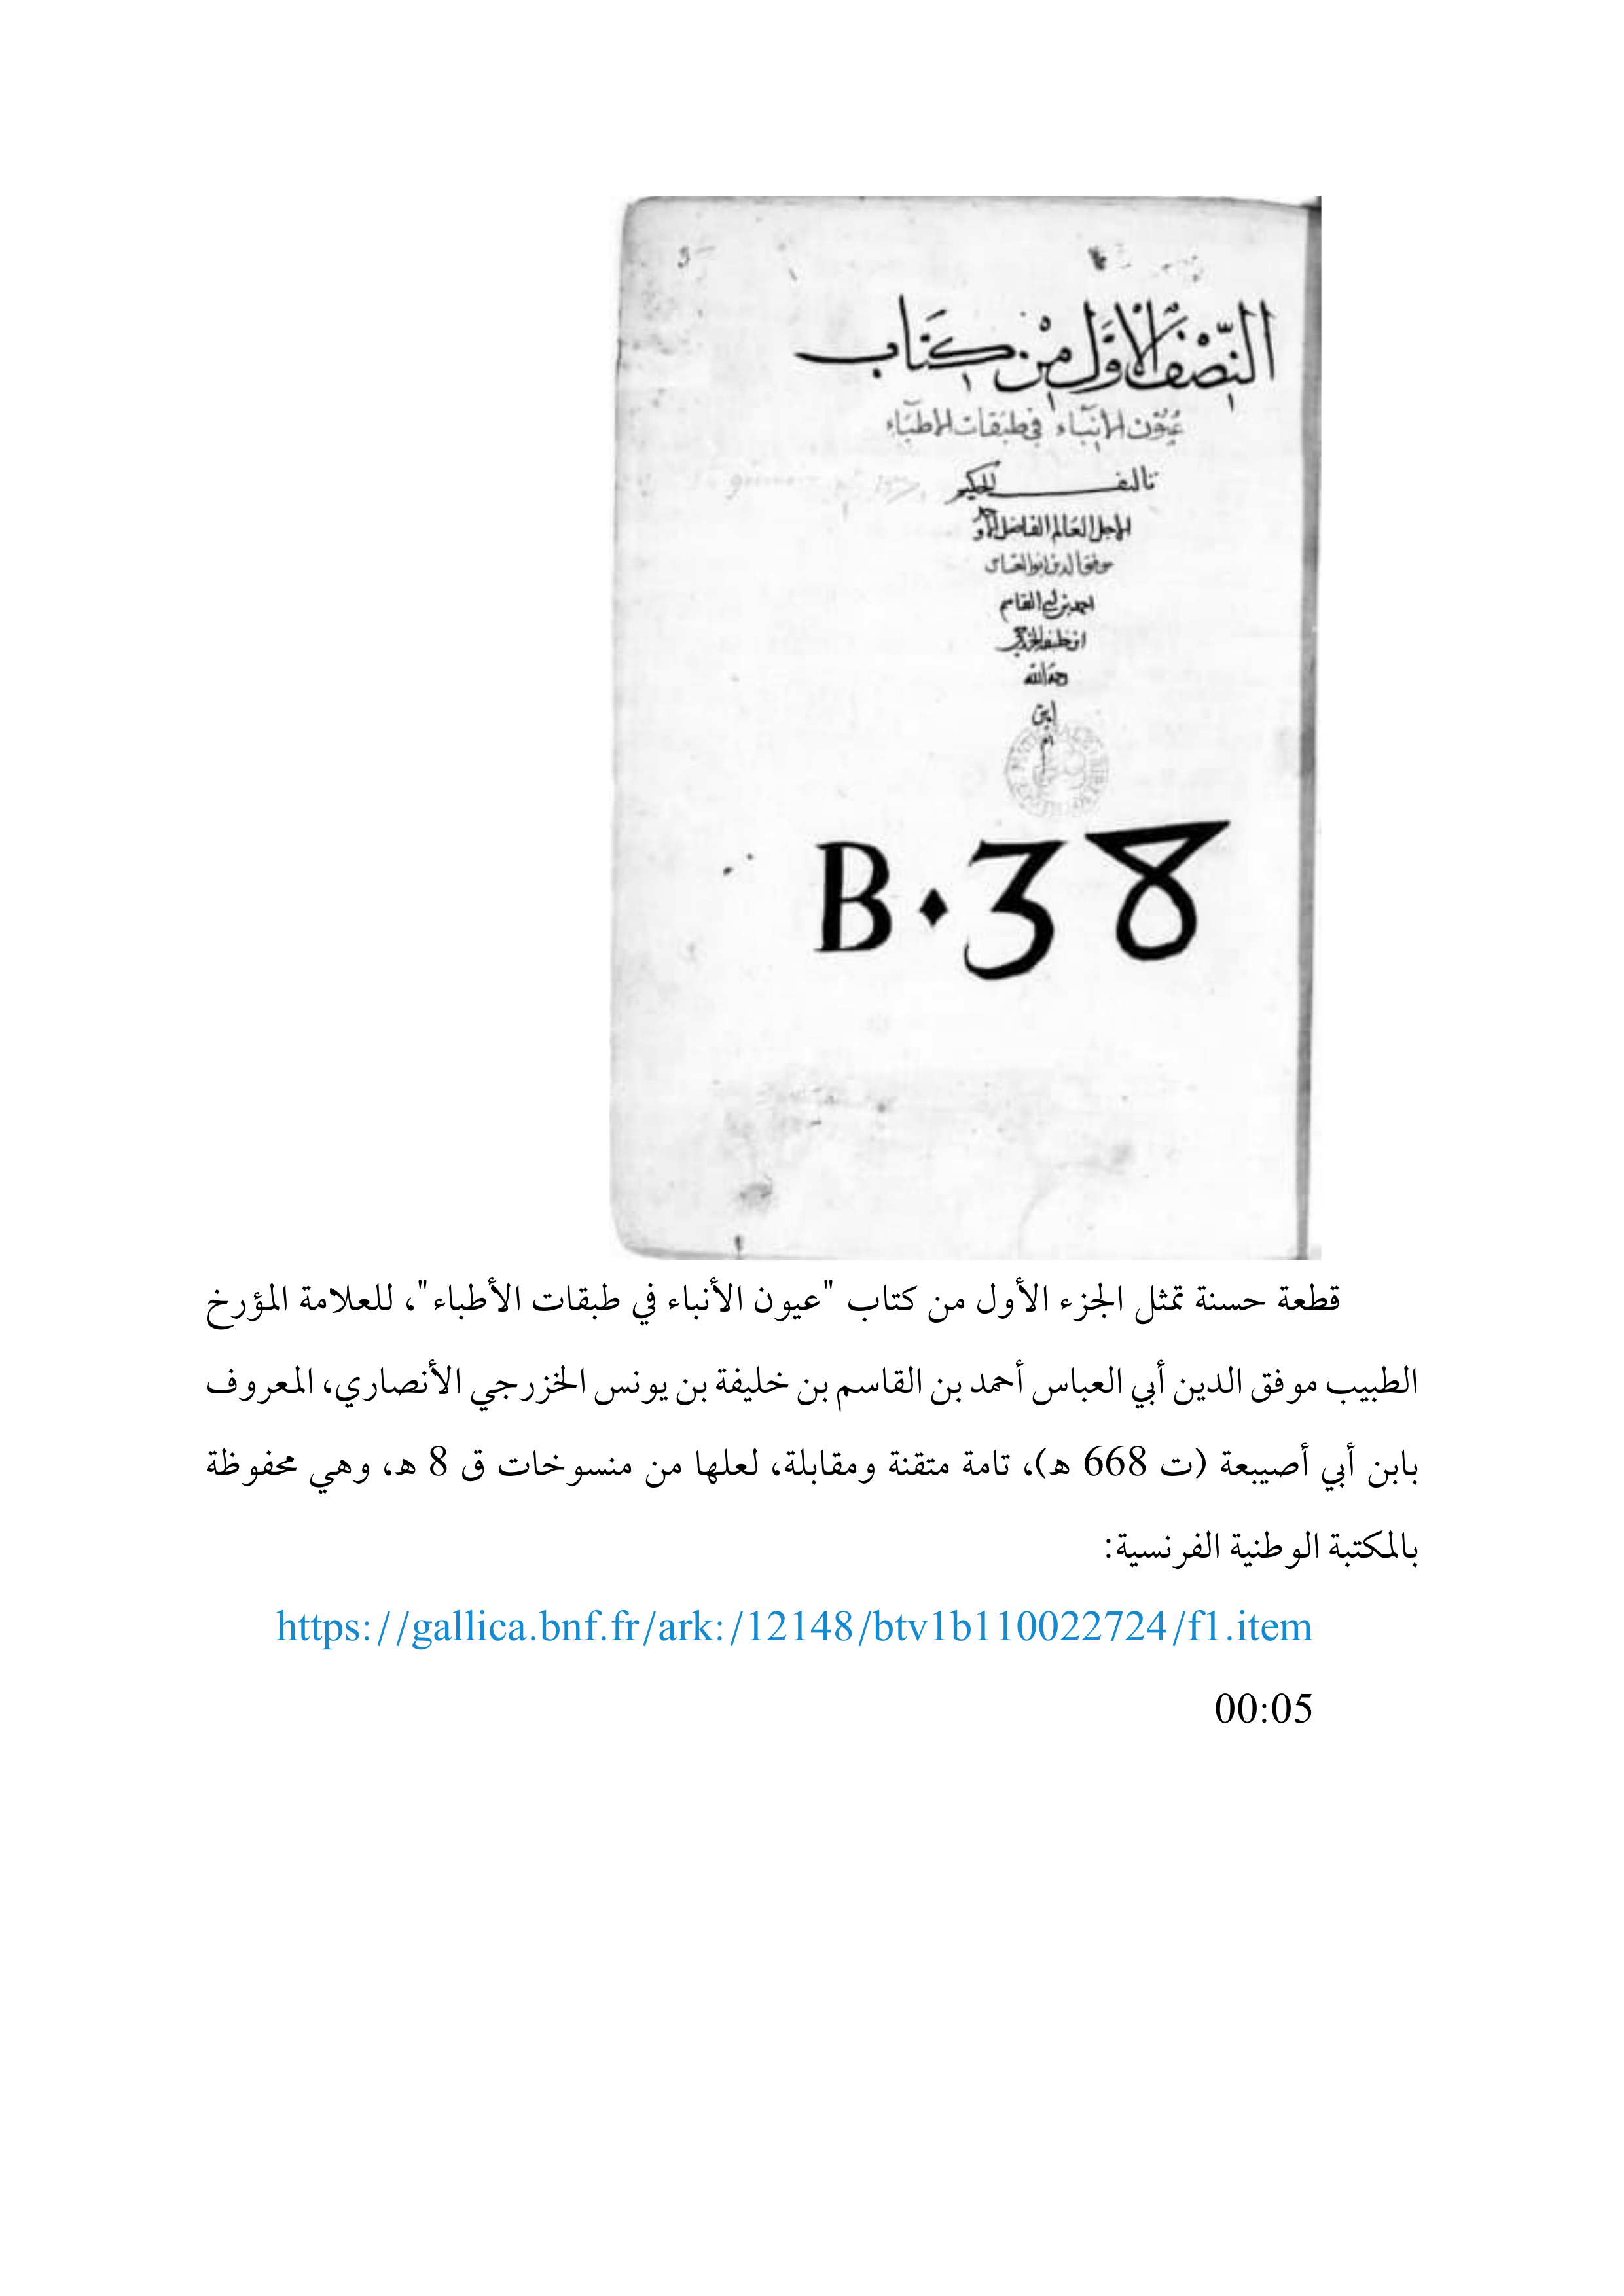 النِّصْفُ الْاَوَّل مِنْ كِتَاب
عُيُون الأنبَآء في طبَقات الأطبَّاء
تاليف الحكيم
الاجل العَالم الفاضل الأوحد
موفق الدين ابو العباس
احمد بن ابي القاسم
ابن خليفه الخزرجي
رحمه الله
امين
B·38
قطعة حسنة تمثل الجزء الأول من كتاب "عيون الأنباء في طبقات الأطباء"، للعلامة المؤرخ
الطبيب موفق الدين أبي العباس أحمد بن القاسم بن خليفة بن يونس الخزرجي الأنصاري، المعروف
بابن أبي أصيبعة (ت 668 هـ)، تامة متقنة ومقابلة، لعلها من منسوخات ق 8 هـ، وهي محفوظة
بالمكتبة الوطنية الفرنسية:
https://gallica.bnf.fr/ark:/12148/btv1b110022724/f1.item
00:05